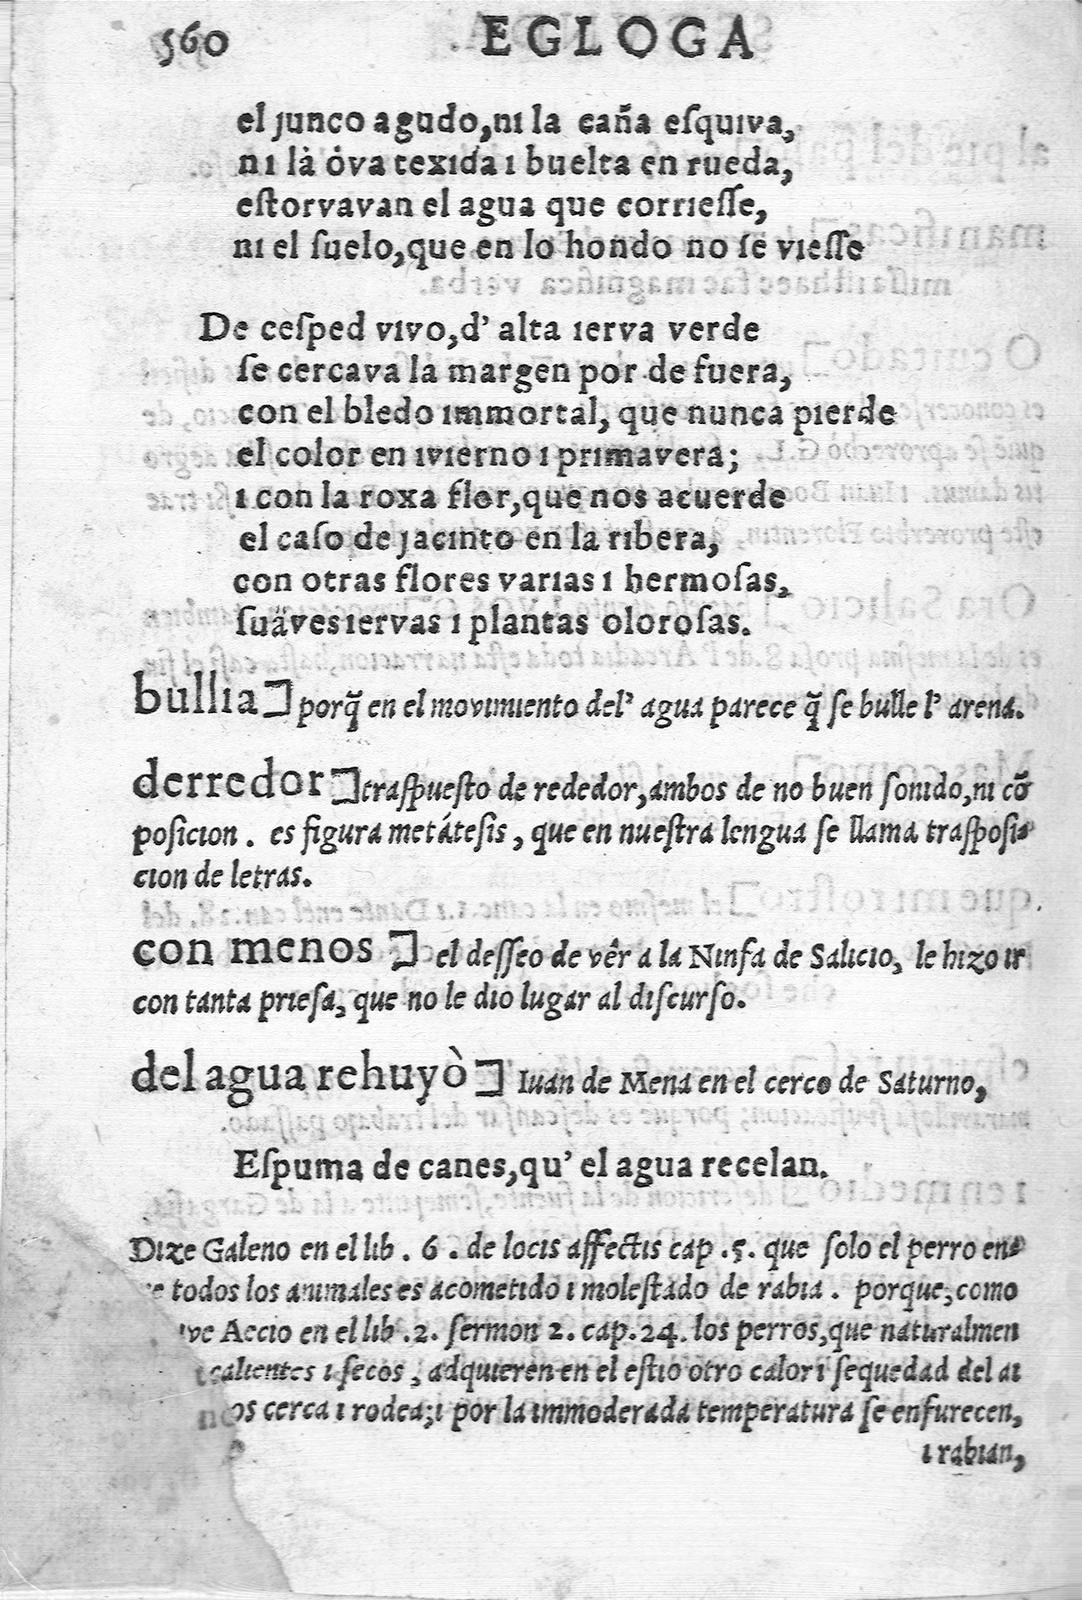 560 EGLOGA
el junco agudo,ni la caña eſquiva,
ni là òva texida i buelta en rueda,
eſtorvavan el agua que corrieſſe,
ni el ſuelo,que en lo hondo no ſe vieſſe
De ceſped vivo,d' alta ierva verde
ſe cercava la margen por de fuera,
con el bledo immortal, que nunca pierde
el color en ivierno i primavera;
i con la roxa flor,que nos acuerde
el caſo de jacinto en la ribera,
con otras flores varias i hermoſas,
ſuäves iervas i plantas oloroſas.
bullia] porq̃ en el movimiento del' agua parece q̃ ſe bulle l' arena.
derredor] traſpueſto de rededor,ambos de no buen ſonido,ni cõ
poſicion . es figura metátesis , que en nueſtra lengua ſe llama traſpoſi-
cion de letras.
con menos ] el deſſeo de vêr a la Ninfa de Salicio, le hizo ir
con tanta prieſa, que no le dio lugar al diſcurſo.
del agua rehuyò ] Iuan de Mena en el cerco de Saturno,
Eſpuma de canes,qu' el agua recelan.
Dize Galeno en el lib . 6 . de locis affectis cap .5. que ſolo el perro en-
todos los animales es acometido i moleſtado de rabia . porque,como
Aecio en el lib .2. ſermon 2. cap.24. los perros,que naturalmen
calientes i ſecos , adquieren en el eſtio otro calor i ſequedad del ai
os cerca i rodea;i por la immoderada temperatura ſe enfurecen,
i rabian,